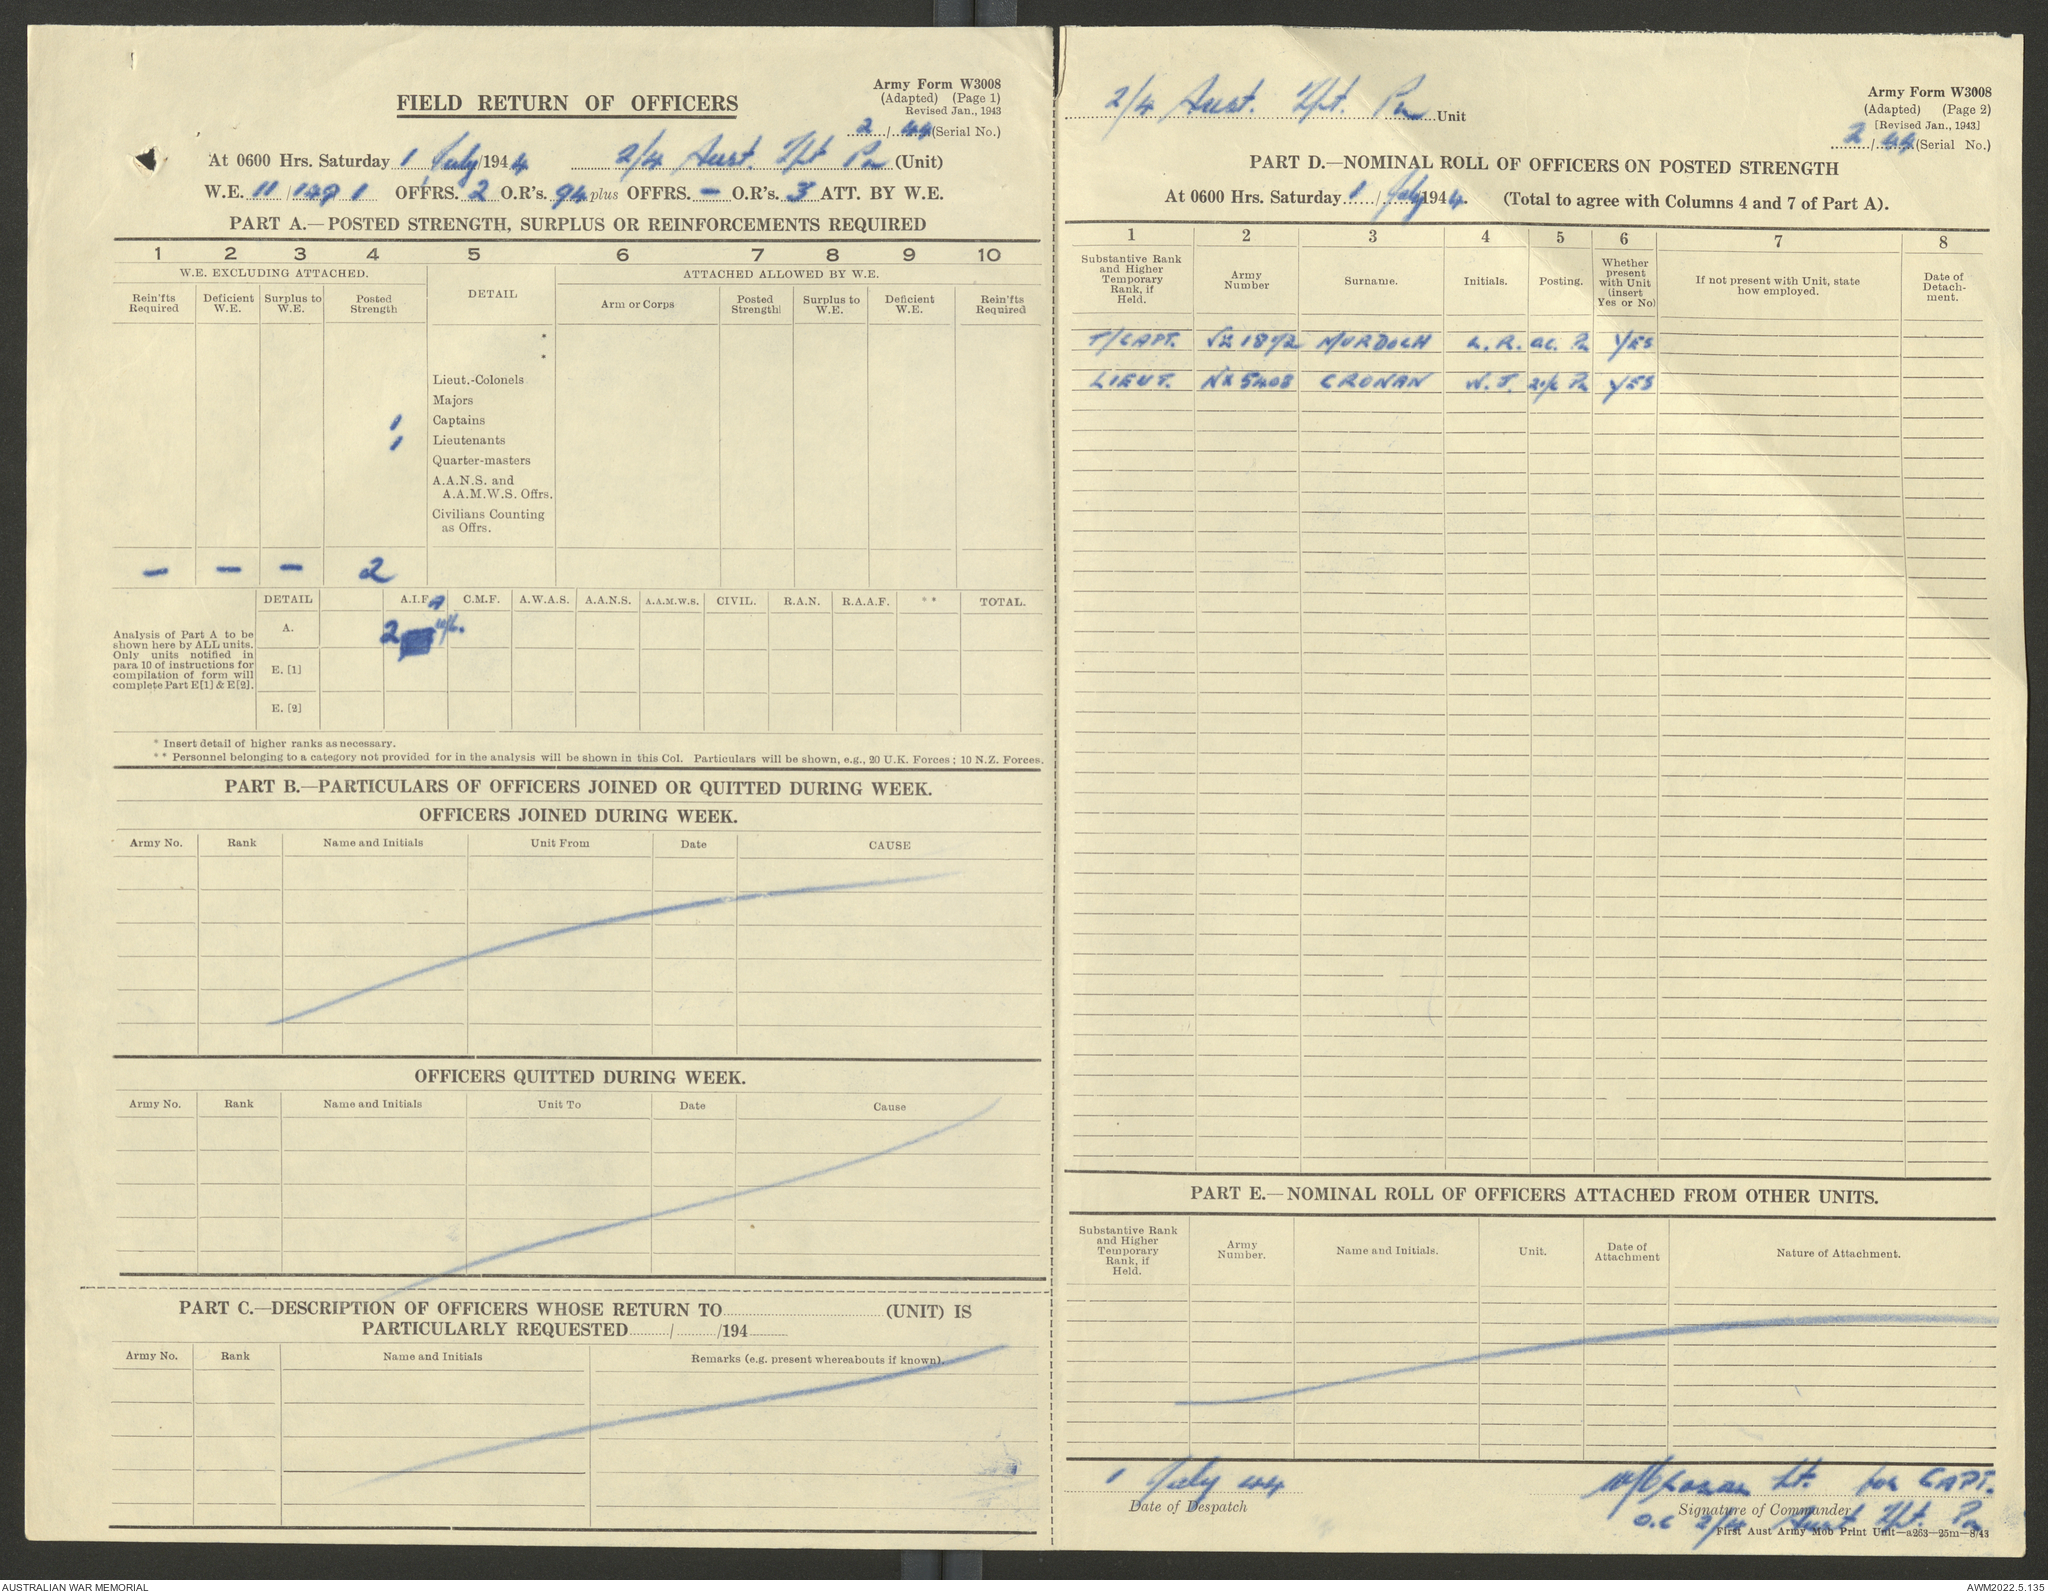 FIELD RETURN OF OFFICERS
Army Form W3008
(Adapted) (Page 1)
Revised Jan., 1943
2/44 (Serial No.)
At 0600 Hrs. Saturday 1 July/1944 2/4 Aust. Lt Pn (Unit)
W.E. 11/ 1 OFFRS. 2 O.R's. 94 plus OFFRS. — O.R's. 3 ATT. BY W.E.
PART A.—POSTED STRENGTH, SURPLUS OR REINFORCEMENTS REQUIRED
1 2 3 4 5 6 7 8 9 10
W.E. EXCLUDING ATTACHED.
DETAIL
ATTACHED ALLOWED BY W.E.
Rein'fts Required
Deficient W.E.
Surplus to W.E.
Posted Strength
Arm or Corps
Posted Strength
Surplus to W.E.
Deficient W.E.
Rein'fts Required
*
*
Lieut.-Colonels
Majors
1 Captains
1 Lieutenants
Quarter-masters
A.A.N.S. and
A.A.M.W.S. Offrs.
Civilians Counting
as Offrs.
— — — 2
DETAIL A.I.F. C.M.F. A.W.A.S. A.A.N.S. A.A.M.W.S. CIVIL. R.A.N. R.A.A.F. ** TOTAL.
Analysis of Part A to be
shown here by ALL units.
Only units notified in
para 10 of instructions for
compilation of form will
complete Part E[1] & E[2].
A. 2
E. [1]
E. [2]
* Insert detail of higher ranks as necessary.
** Personnel belonging to a category not provided for in the analysis will be shown in this Col. Particulars will be shown, e.g., 20 U.K. Forces ; 10 N.Z. Forces.
PART B.—PARTICULARS OF OFFICERS JOINED OR QUITTED DURING WEEK.
OFFICERS JOINED DURING WEEK.
Army No. Rank Name and Initials Unit From Date CAUSE
OFFICERS QUITTED DURING WEEK.
Army No. Rank Name and Initials Unit To Date Cause
PART C.—DESCRIPTION OF OFFICERS WHOSE RETURN TO (UNIT) IS
PARTICULARLY REQUESTED / /194
Army No. Rank Name and Initials Remarks (e.g. present whereabouts if known).
2/4 Aust. Pn Unit
Army Form W3008
(Adapted) (Page 2)
[Revised Jan., 1943]
2/44 (Serial No.)
PART D.—NOMINAL ROLL OF OFFICERS ON POSTED STRENGTH
At 0600 Hrs. Saturday 1 / July 1944. (Total to agree with Columns 4 and 7 of Part A).
1 2 3 4 5 6 7 8
Substantive Rank and Higher Temporary Rank, if Held.
Army Number
Surname.
Initials.
Posting.
Whether present with Unit (insert Yes or No)
If not present with Unit, state how employed.
Date of Detach- ment.
T/CAPT. VX 1872 MURDOCH L.R. O.C. Pn YES
LIEUT. NX 5408 CRONAN W.J. 2i/c Pn YES
PART E.—NOMINAL ROLL OF OFFICERS ATTACHED FROM OTHER UNITS.
Substantive Rank and Higher Temporary Rank, if Held.
Army Number.
Name and Initials.
Unit.
Date of Attachment
Nature of Attachment.
1 July 44
Date of Despatch
WJ Cronan Lt. for CAPT.
Signature of Commander
O.C 2/4 Aust Pn
First Aust Army Mob Print Unit—a263—25m—8/43
AUSTRALIAN WAR MEMORIAL
AWM2022.5.135